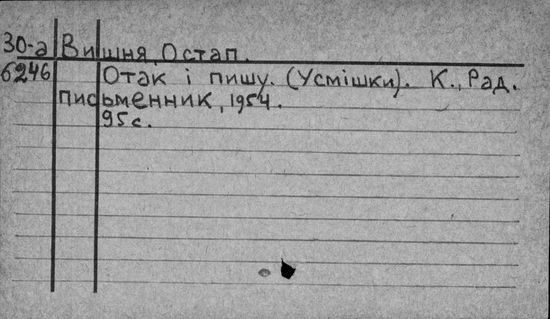 30-а Вишня Остап.
6246 Отак і пишу. (Усмішки). К., Рад.
письменник, 1954.
95с.